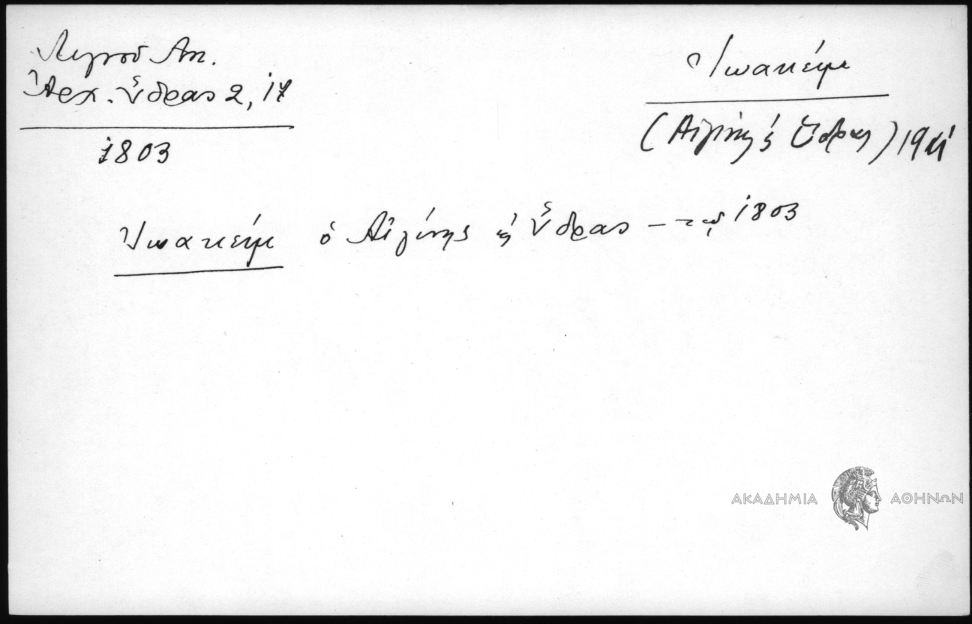 Λιγνοῦ Αν.
Ἀρχ. Ὕδρας 2, 17
1803
Ἰωακείμ
(Αἰγίνης & Ὕδρας)
Ἰωακείμ ὁ Αἰγίνης & Ὕδρας — τῷ 1803
ΑΚΑΔΗΜΙΑ ΑΘΗΝΩΝ